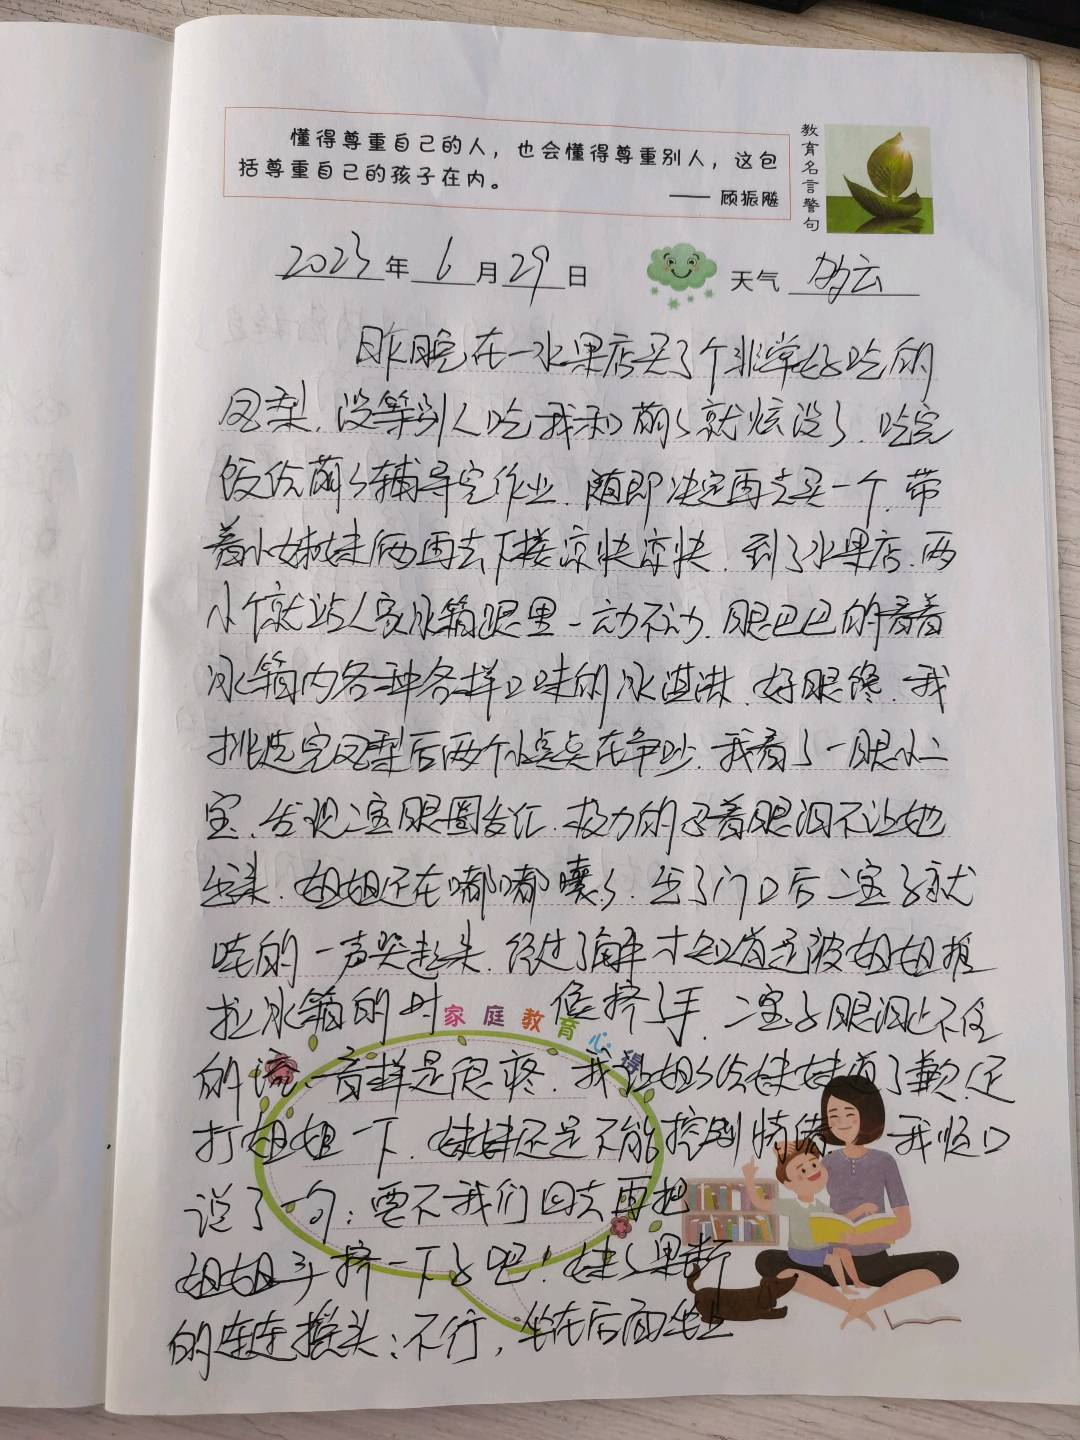 懂得尊重自己的人，也会懂得尊重别人，这包
括尊重自己的孩子在内。
—— 顾振飚
教育名言警句
2023年 6月29日 天气 多云
昨晚在一水果店买了个非常好吃的
凤梨，没等别人吃我和萌萌就炫没了，吃完
饭给萌萌辅导完作业，随即决定再去买一个，带
着小姊妹俩再去下楼凉快凉快，到了水果店，两
小个就站人家冰箱跟里一动不动，眼巴巴的看着
冰箱内各种各样口味的冰淇淋，好眼馋，我
挑选完凤梨后两个小点点在争吵，我看了一眼小二
宝，发现二宝眼圈发红，极力的忍着眼泪不让她
出来，姐姐还在嘟嘟囔囔，出了门口后二宝子就
吭的一声哭起来，经过了解才知道是被姐姐推
拉冰箱的时候挤了手，二宝子眼泪止不住
的流，音样是很疼，我让姐姐给妹妹道了歉，还
打姐姐一下，妹妹还是不能控制情绪，我顺口
说了一句：要不我们回去再把
姐姐手挤一下子吧！妹妹果断
的连连摇头：不行，坐在后面坐上
家庭教育心得